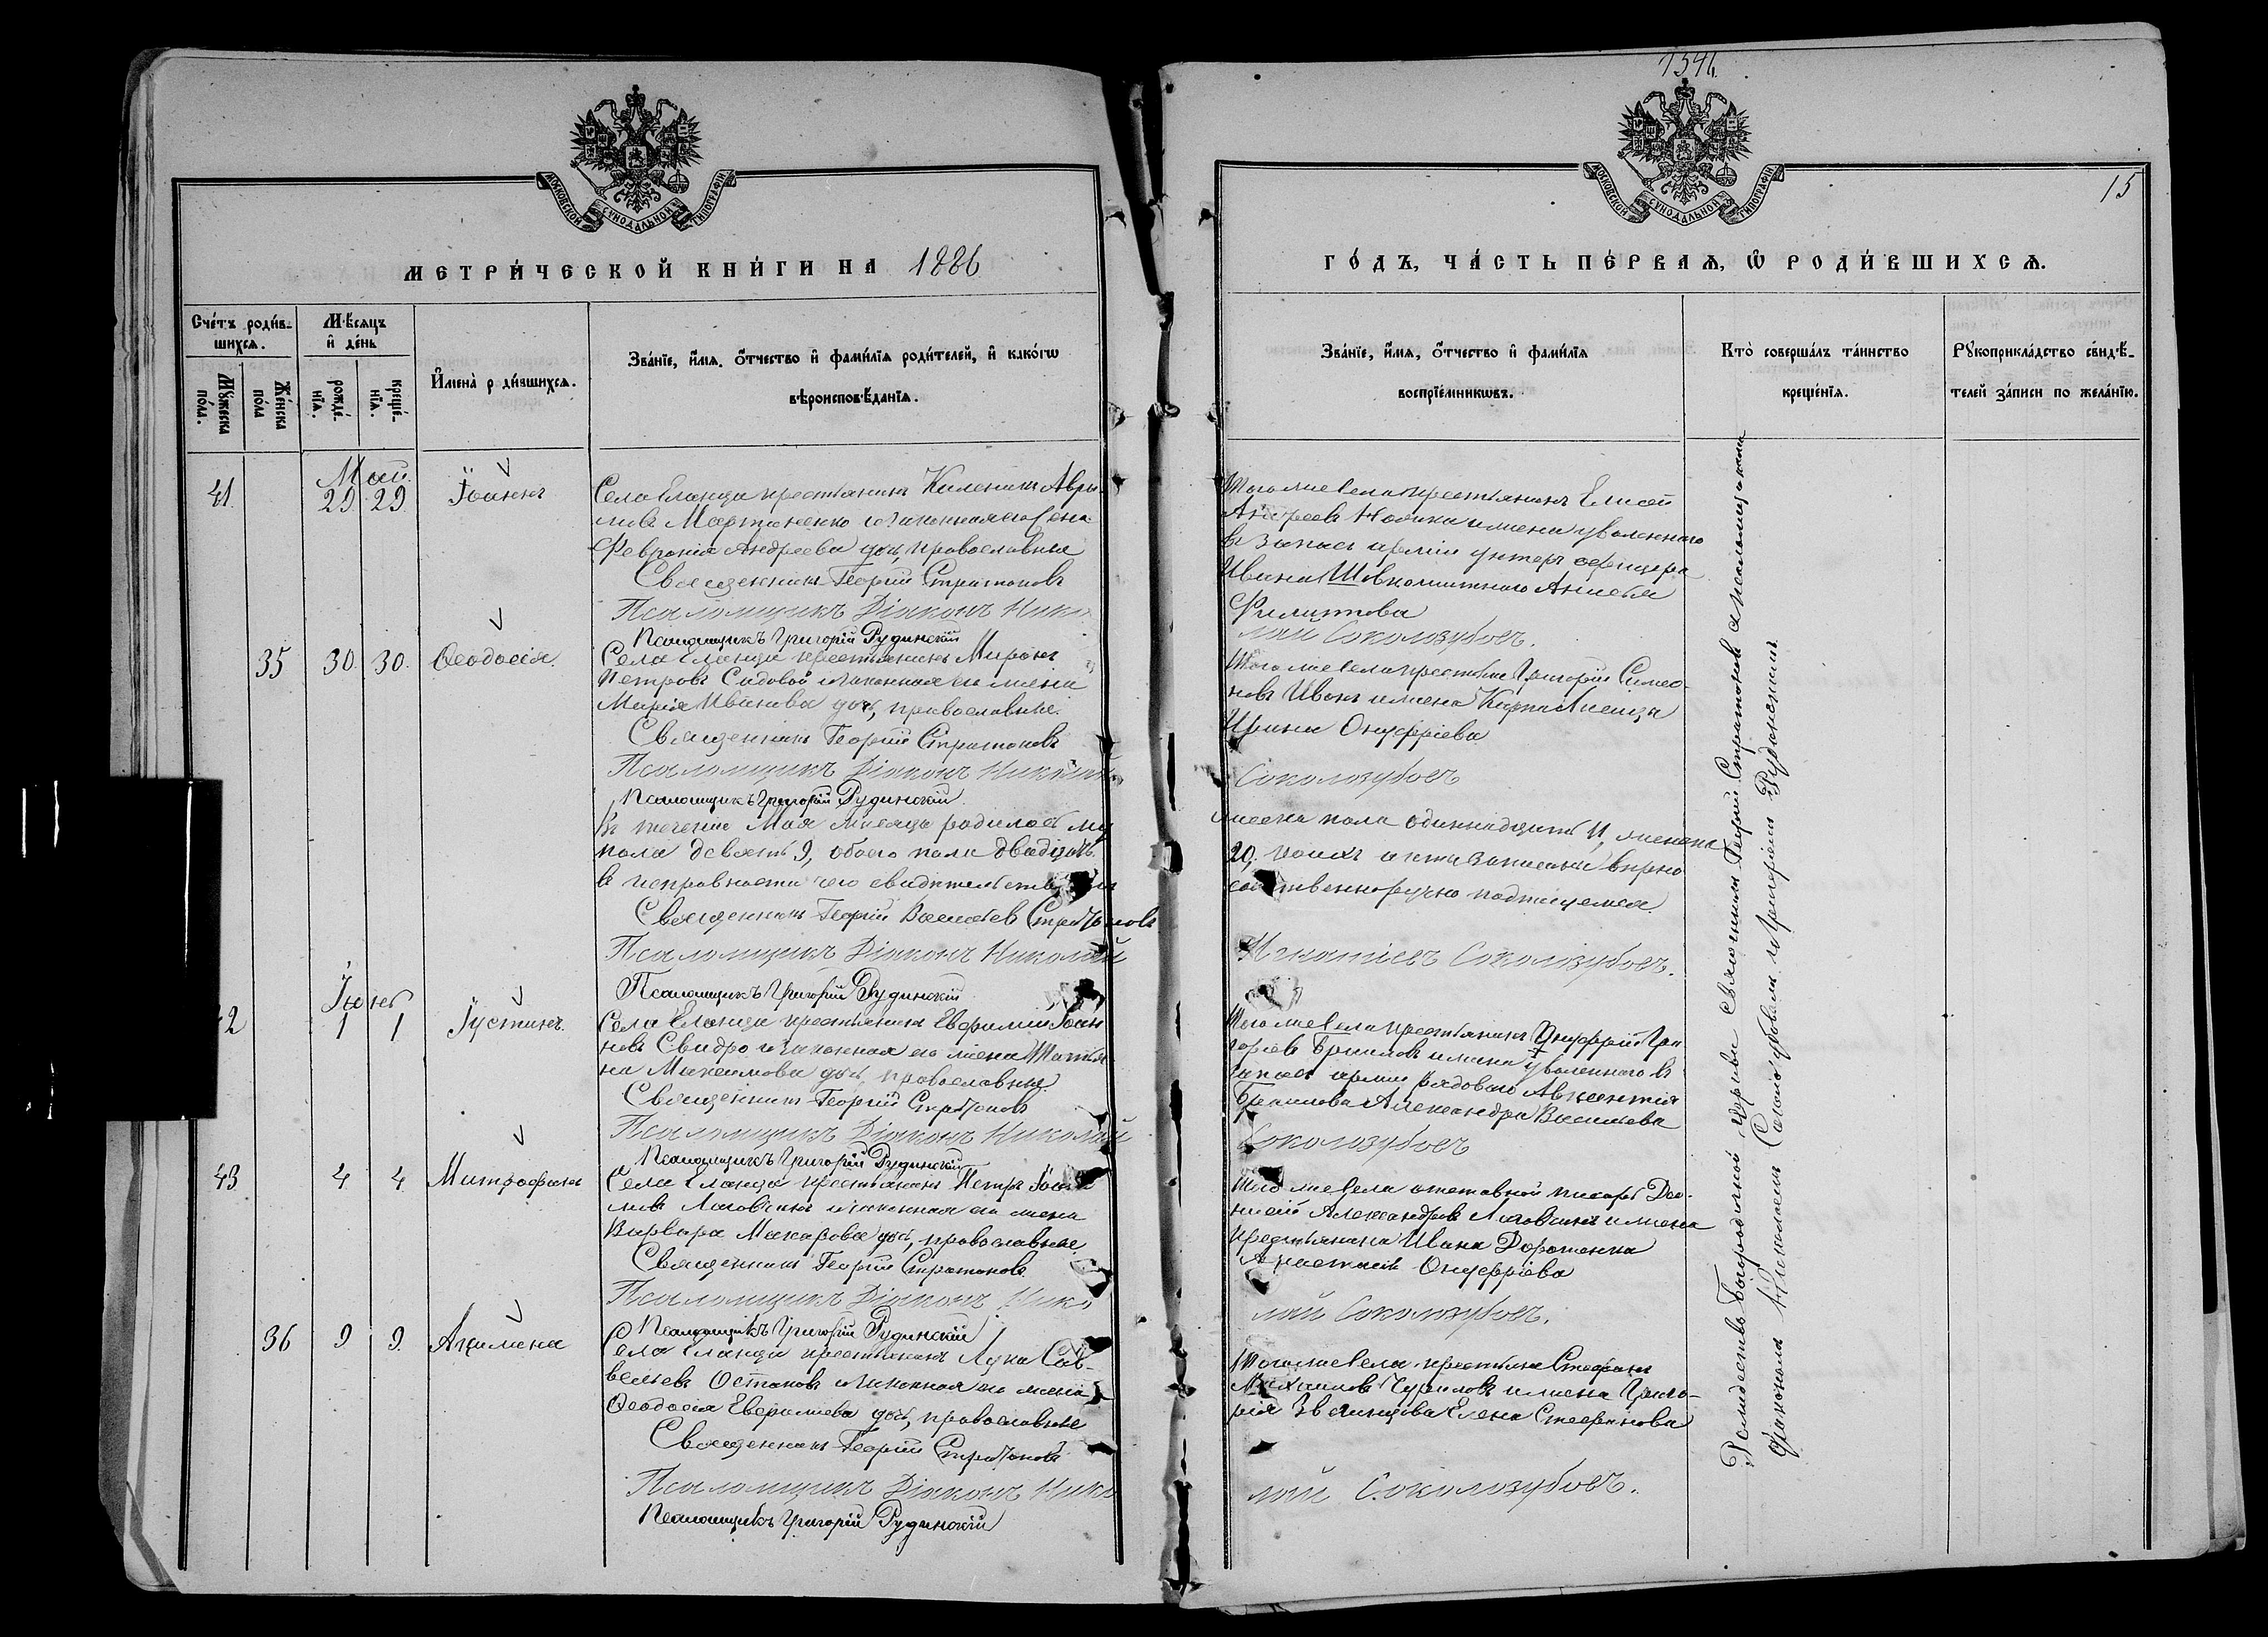 1346.
15
МОСКОВСКОЙ СУНОДАЛЬНОЙ ТИПОГРАФІИ
МОСКОВСКОЙ СУНОДАЛЬНОЙ ТИПОГРАФІИ
МЕТРИ́ЧЕСКОЙ КНИ́ГИ НА 1886
ГО́ДЪ, ЧА́СТЬ ПЕ́РВАЯ, Ѡ РОДИ́ВШИХСЯ.
Сче́тъ роди́в-
шихся.
Мꙋ́жеска по́ла.
Же́нска по́ла
Мѣ́сяцъ
и҆ де́нь
рожде́-
нїя.
креще́-
нїя.
И҆мена̀ р ди́вшихся.
Зва́нїе, и҆́мя, ѻ҆́тчество и҆ фами́лїя роди́телей, и҆ како́гѡ
вѣроисповѣ́данїя.
Зва́нїе, и҆́мя, ѻ҆́тчество и҆ фами́лїя
воспрїе́мникѡвъ.
Кто̀ соверша́лъ та́инство
креще́нїя.
Рꙋкоприкла́дство свидѣ́-
телей за́писи по жела́нїю.
Май.
41. 29. 29. Іоаннъ
Села Еланца крестьянинъ Каленикъ Аври-
мовъ Мартыненко и законная его жена
Феврония Андреева доч, православныя
Священникъ Георгій Стратоновъ
Псаломщикъ Діаконъ Нико
Псаломщикъ Григорій Рудинскій
Того же села крестьянинъ Елисей
Андреевъ и жена уволеннаго
въ запасъ арміи унтеръ офицера
Ивана Шовкоплясного
Филиппова
лай Сокологубовъ.
35 30. 30. Ѳеодосія.
Села Еланца крестьянинъ Миронъ
Петровъ Садовой и законная его жена
Марія Иванова доч, православные.
Священникъ Георгій Стратоновъ
Псаломщикъ Діаконъ Николай
Псаломщикъ Григорій Рудинскій
Того же села крестьянинъ Григорій Симео-
новъ и жена
Ирина Онуфріева
Сокологубовъ
Въ теченіе Мая мѣсяца родилось му
пола девять 9, обоего пола двадцать
въ исправности чего свидѣтельствуемъ
Священникъ Георгій Васильевъ Стратоновъ
Псаломщикъ Діаконъ Николай
Псаломщикъ Григорій Рудинскій
жеска пола одиннадцать 11, женска
20, коихъ акты записаны вѣрно
собственноручно подпишемся.
Игнатіевъ Сокологубовъ.
Іюнь
2 1 1 Іустинъ.
Села Еланца крестьянинъ Евфимій Іоан
новъ Свидро и законная его жена Татья
на Максимова доч, православные
Священникъ Георгій Стратоновъ
Псаломщикъ Діаконъ Николай
Псаломщикъ Григорій Рудинскій
Того же села крестьянинъ Онуфрій Гри
горьевъ и жена уволеннаго въ
запасъ арміи рядоваго Авксентія
Александра Васильева
Сокологубовъ
43 4. 4. Митрофанъ
Села Еланца крестьянинъ Петръ
и законная его жена
Варвара Макарова доч, православные
Священникъ Георгій Стратоновъ
Псаломщикъ Діаконъ Нико
Псаломщикъ Григорій Рудинскій
Того же села отставной писарь Део-
нисій Александровъ и жена
крестьянина Ивана Дорошенка
Анастасія Онуфріева
лай Сокологубовъ.
36 9 9. Акилина
Села Еланца крестьянинъ Лука Сав-
вельевъ Остаповъ и законная его жена
Ѳеодосія Евфимиева доч, православные
Священникъ Георгій Стратоновъ
Псаломщикъ Діаконъ Нико
Псаломщикъ Григорій Рудинскій
Того же села крестьянинъ Стефанъ
Михаиловъ Чуриловъ и жена Григо-
рія Звягинцева Елена Стефанова
лай Сокологубовъ.
Рождество Богородичной церкви священникъ Георгій Стратоновъ съ псаломщиками
діакономъ Николаемъ Сокологубовымъ и Григоріемъ Рудинскимъ